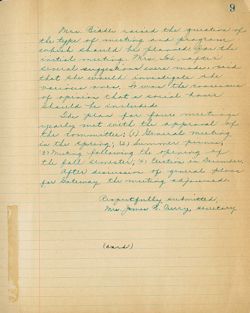 9
Mrs. Beadle raised the question of
the type of meeting and program
which should be planned for the
initial meeting. Mrs. after
several suggestions were made, said
that she would investigate the
various ones. It was the consensus
of opinion that a social hour
should be included.
The plan for four meetings
yearly met with the approval of
the committee; (1) General meeting
in the Spring; (2) Summer picnic;
3) Meeting following the opening of
the fall semester; 4) Election in December.
After discussion of general plans
for Gateway the meeting adjourned.
Respectfully submitted,
Mrs. James Perry, secretary
(over)